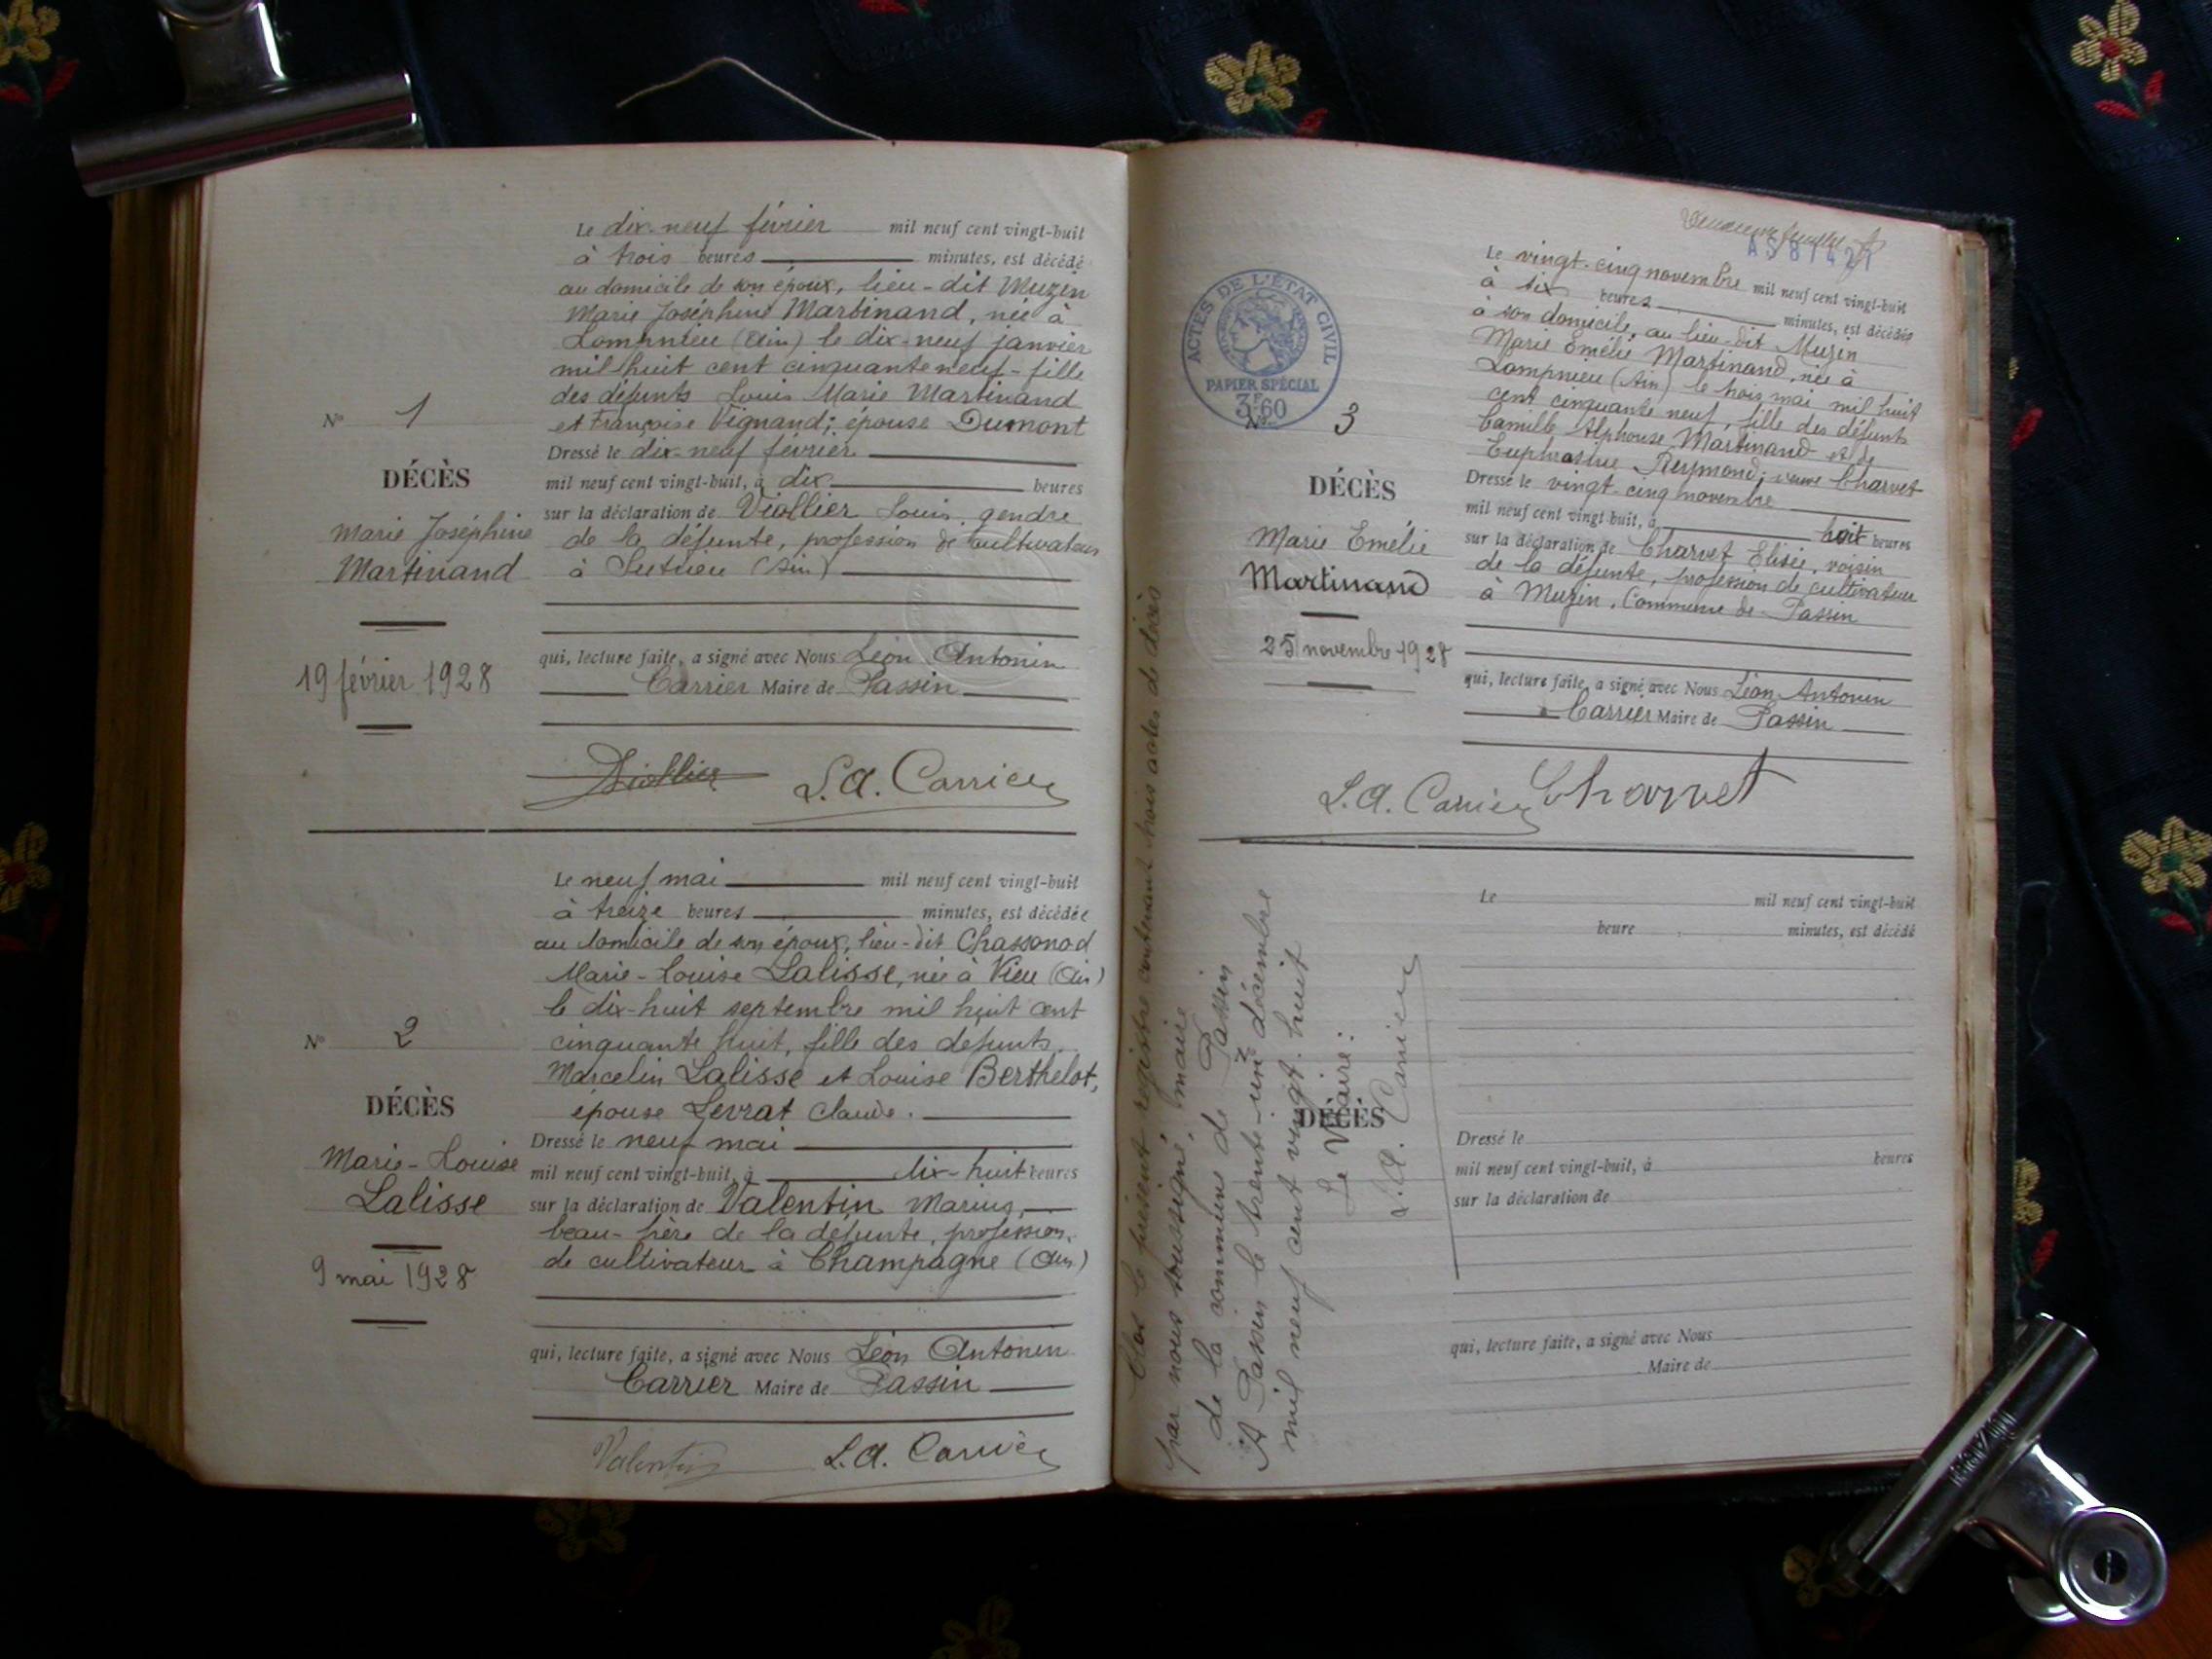 Le dix-neuf février mil neuf cent vingt-huit
à trois heures minutes, est décédé
au domicile de son époux, lieu-dit Muzin
Marie Joséphine Martinand, née à
Lompnieu (Ain) le dix-neuf janvier
mil huit cent cinquante neuf - fille
des défunts Louis Marie Martinand
et Françoise Vignand; épouse Dumont
Dressé le dix-neuf février
mil neuf cent vingt-huit, à dix heures
sur la déclaration de Viollier Louis, gendre
de la défunte, profession de cultivateur
à Sutrieu (Ain)
qui, lecture faite, a signé avec Nous Léon Antonin
Carrier Maire de Passin
Viollier L. A. Carrier
N° 1
DÉCÈS
Marie Joséphine
Martinand
19 février 1928
Le neuf mai mil neuf cent vingt-huit
à treize heures minutes, est décédée
au domicile de son époux, lieu-dit Chassonod
Marie-Louise Lalisse, née à Vieu (Ain)
le dix-huit septembre mil huit cent
cinquante huit, fille des défunts
Marcelin Lalisse et Louise Berthelot,
épouse Levrat Claude.
Dressé le neuf mai
mil neuf cent vingt-huit, à dix-huit heures
sur la déclaration de Valentin Marius,
beau-frère de la défunte, profession
de cultivateur à Champagne (Ain)
qui, lecture faite, a signé avec Nous Léon Antonin
Carrier Maire de Passin
Valentin L. A. Carrier
N° 2
DÉCÈS
Marie-Louise
Lalisse
9 mai 1928
feuillet
AS81421
ACTES DE L'ÉTAT CIVIL
PAPIER SPÉCIAL
3F60
Le vingt-cinq novembre mil neuf cent vingt-huit
à six heures minutes, est décédée
à son domicile, au lieu-dit Muzin
Marie Emélie Martinand, née à
Lompnieu (Ain) le trois mai mil huit
cent cinquante neuf, fille des défunts
Camille Alphonse Martinand et de
Euphrosine Reymond; veuve Charvet
Dressé le vingt-cinq novembre
mil neuf cent vingt-huit, à huit heures
sur la déclaration de Charvet Elisée, voisin
de la défunte, profession de cultivateur
à Muzin, Commune de Passin
qui, lecture faite, a signé avec Nous Léon Antonin
Carrier Maire de Passin
L. A. Carrier Charvet
N° 3
DÉCÈS
Marie Emélie
Martinand
25 novembre 1928
Le mil neuf cent vingt-huit
heure minutes, est décédé
DÉCÈS
Dressé le
mil neuf cent vingt-huit, à heures
sur la déclaration de
qui, lecture faite, a signé avec Nous
Maire de
Clos le présent registre contenant trois actes de décès
par nous soussigné, maire
de la commune de Passin
A Passin le trente-un décembre
mil neuf cent vingt-huit
Le Maire:
L. A. Carrier